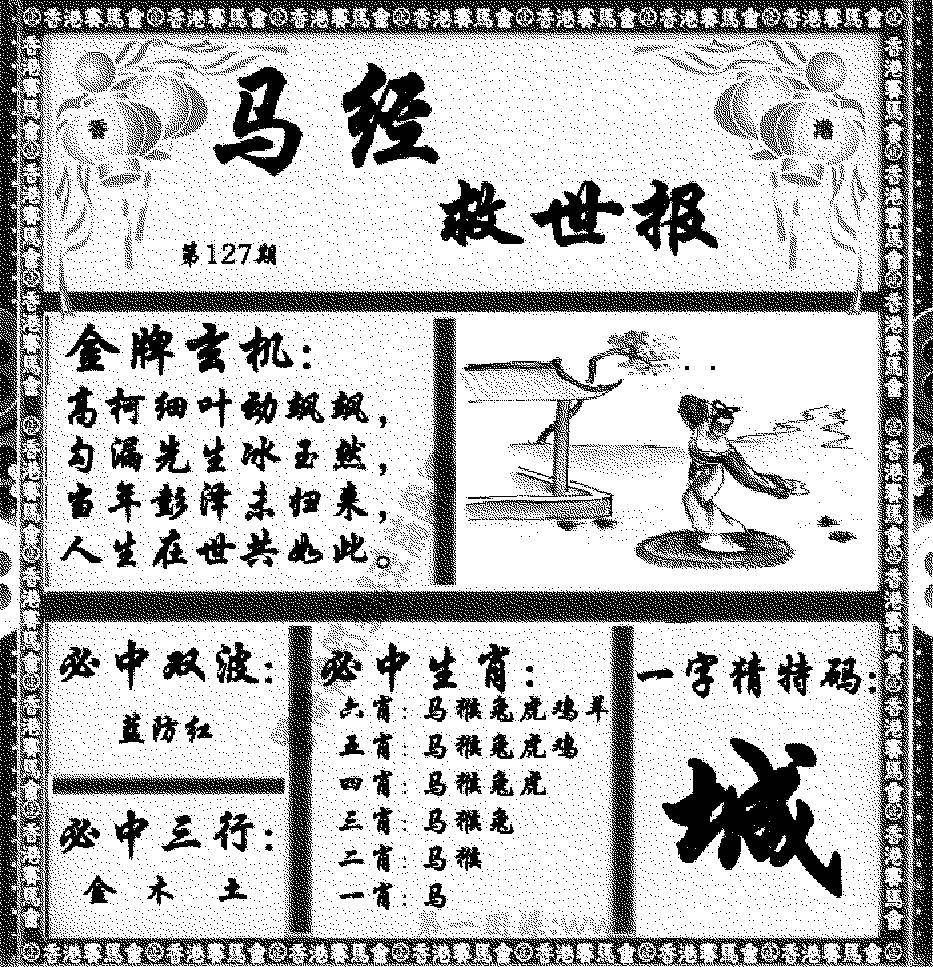 香港賽馬會 香港賽馬會 香港賽馬會 香港賽馬會 香港賽馬會 香港賽馬會 香港賽馬會
香
港
马经
救世报
第127期
金牌玄机：
高柯细叶动飒飒，
勾漏先生冰玉然，
当年彭泽未归来，
人生在世共如此。
必中双波：
蓝防红
必中三行：
金 木 土
必中生肖：
六肖：马猴兔虎鸡羊
五肖：马猴兔虎鸡
四肖：马猴兔虎
三肖：马猴兔
二肖：马猴
一肖：马
一字精特码：
城
香港賽馬會 香港賽馬會 香港賽馬會 香港賽馬會 香港賽馬會 香港賽馬會 香港賽馬會